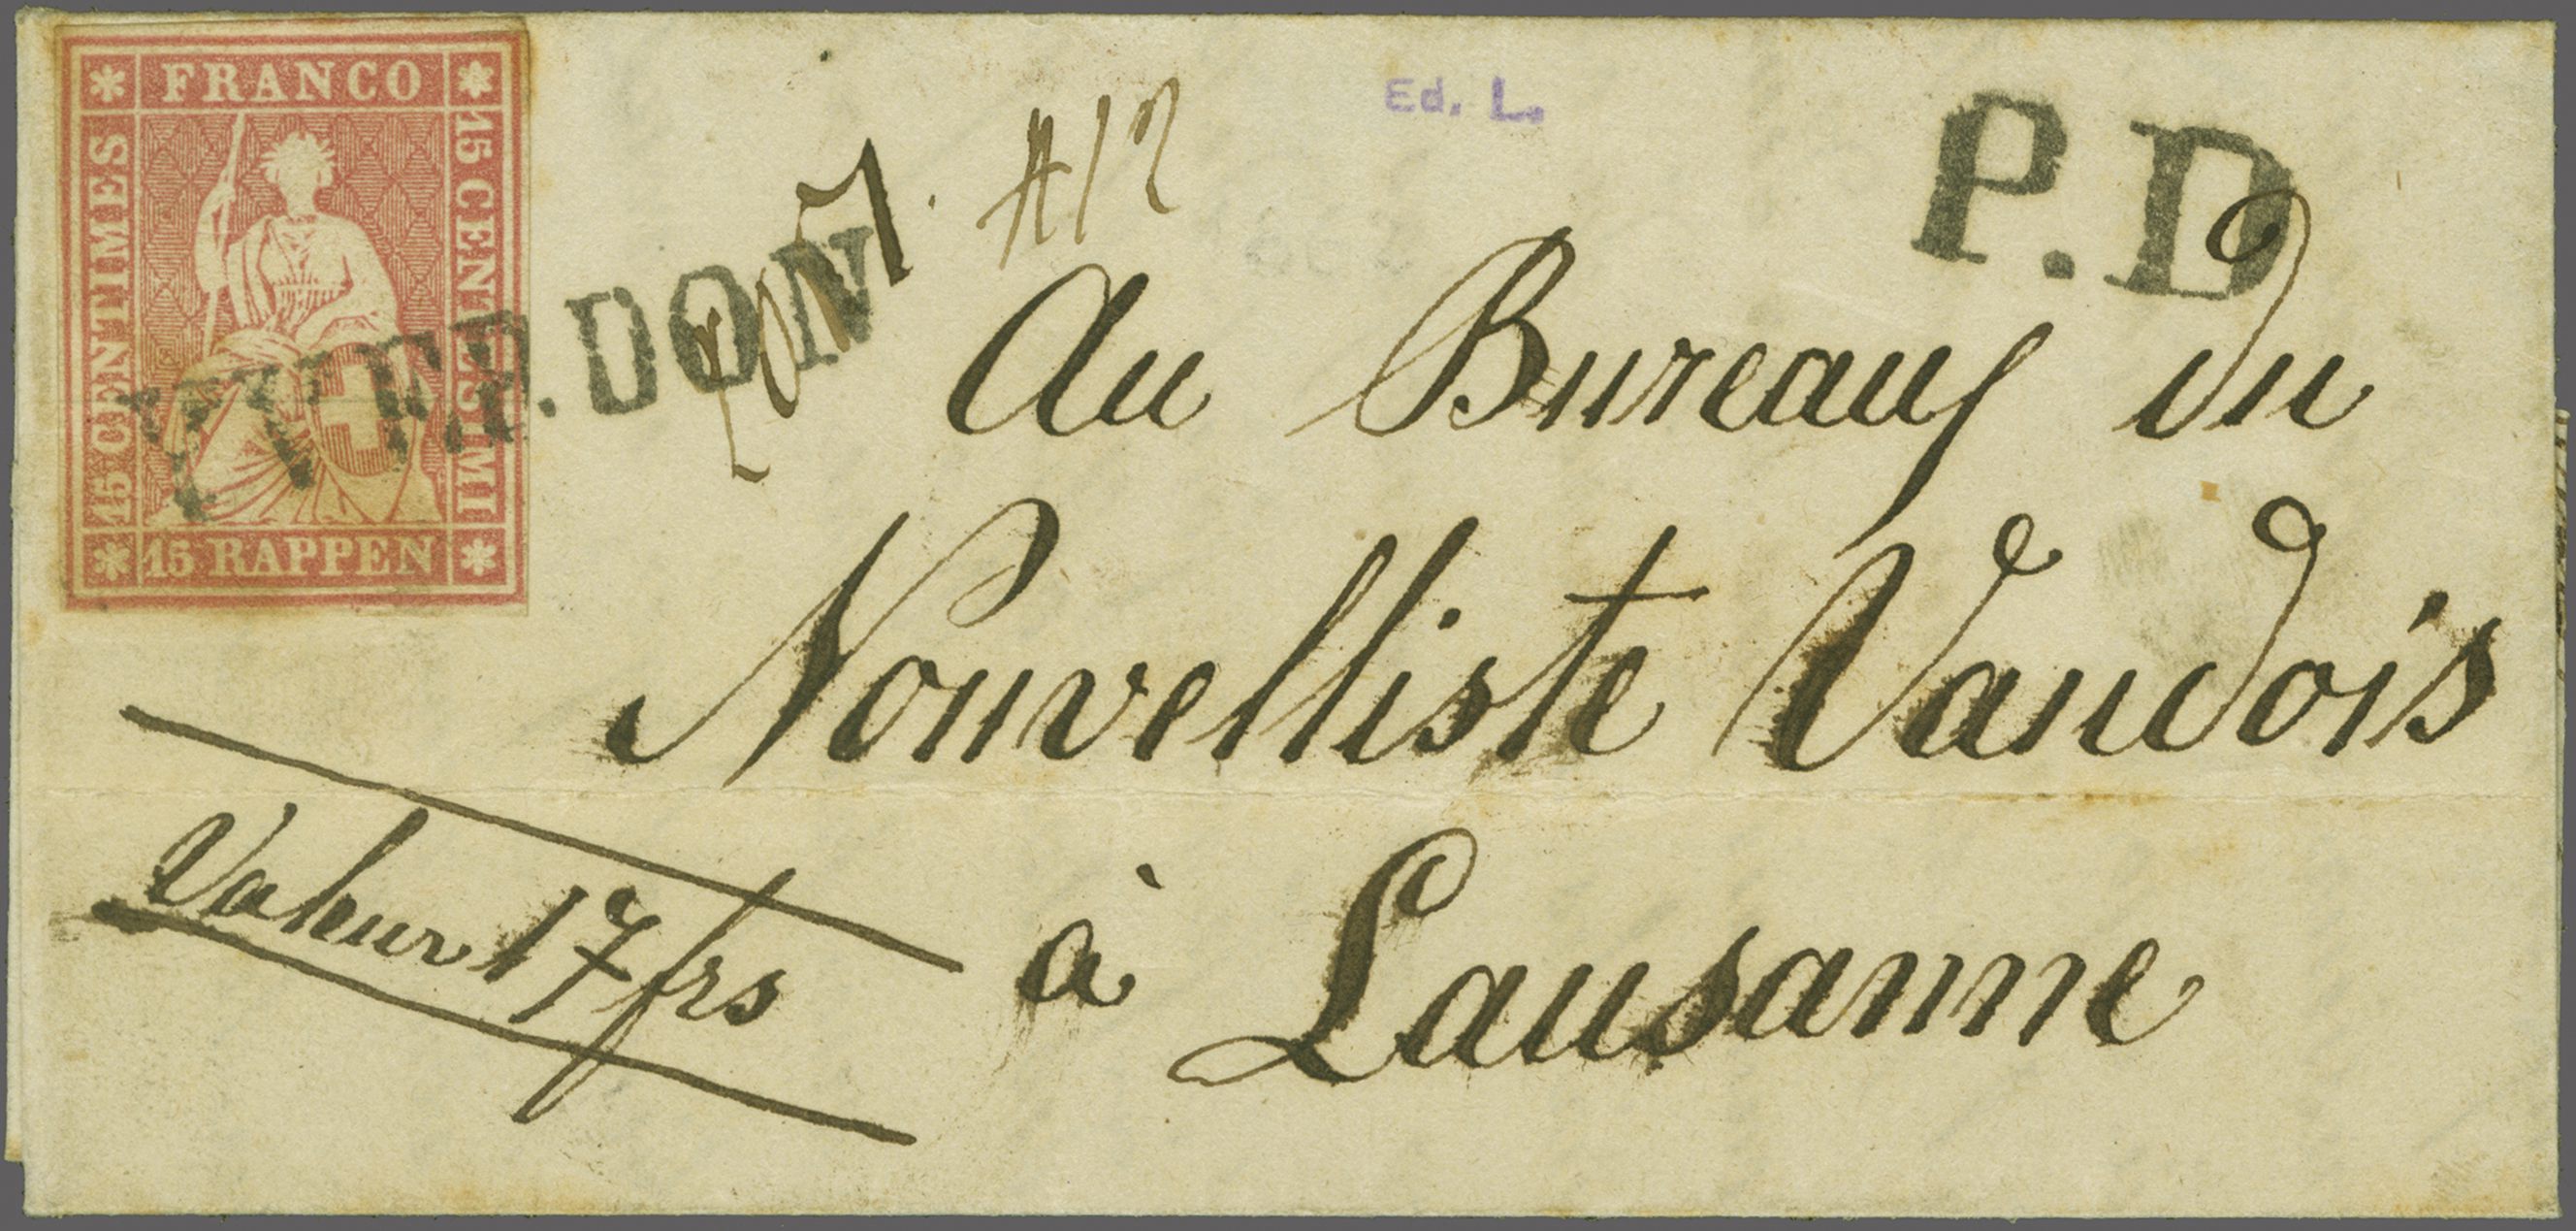 FRANCO
15 CENTIMES
15 CENTESIMI
15 RAPPEN
DON
#12
Ed. L.
P.D
Au Bureau du
Nouvelliste Vaudois
à Lausanne
Valeur 17 frs